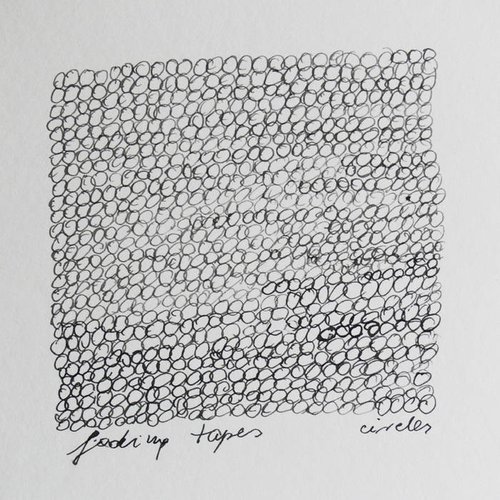 fading tapes circles